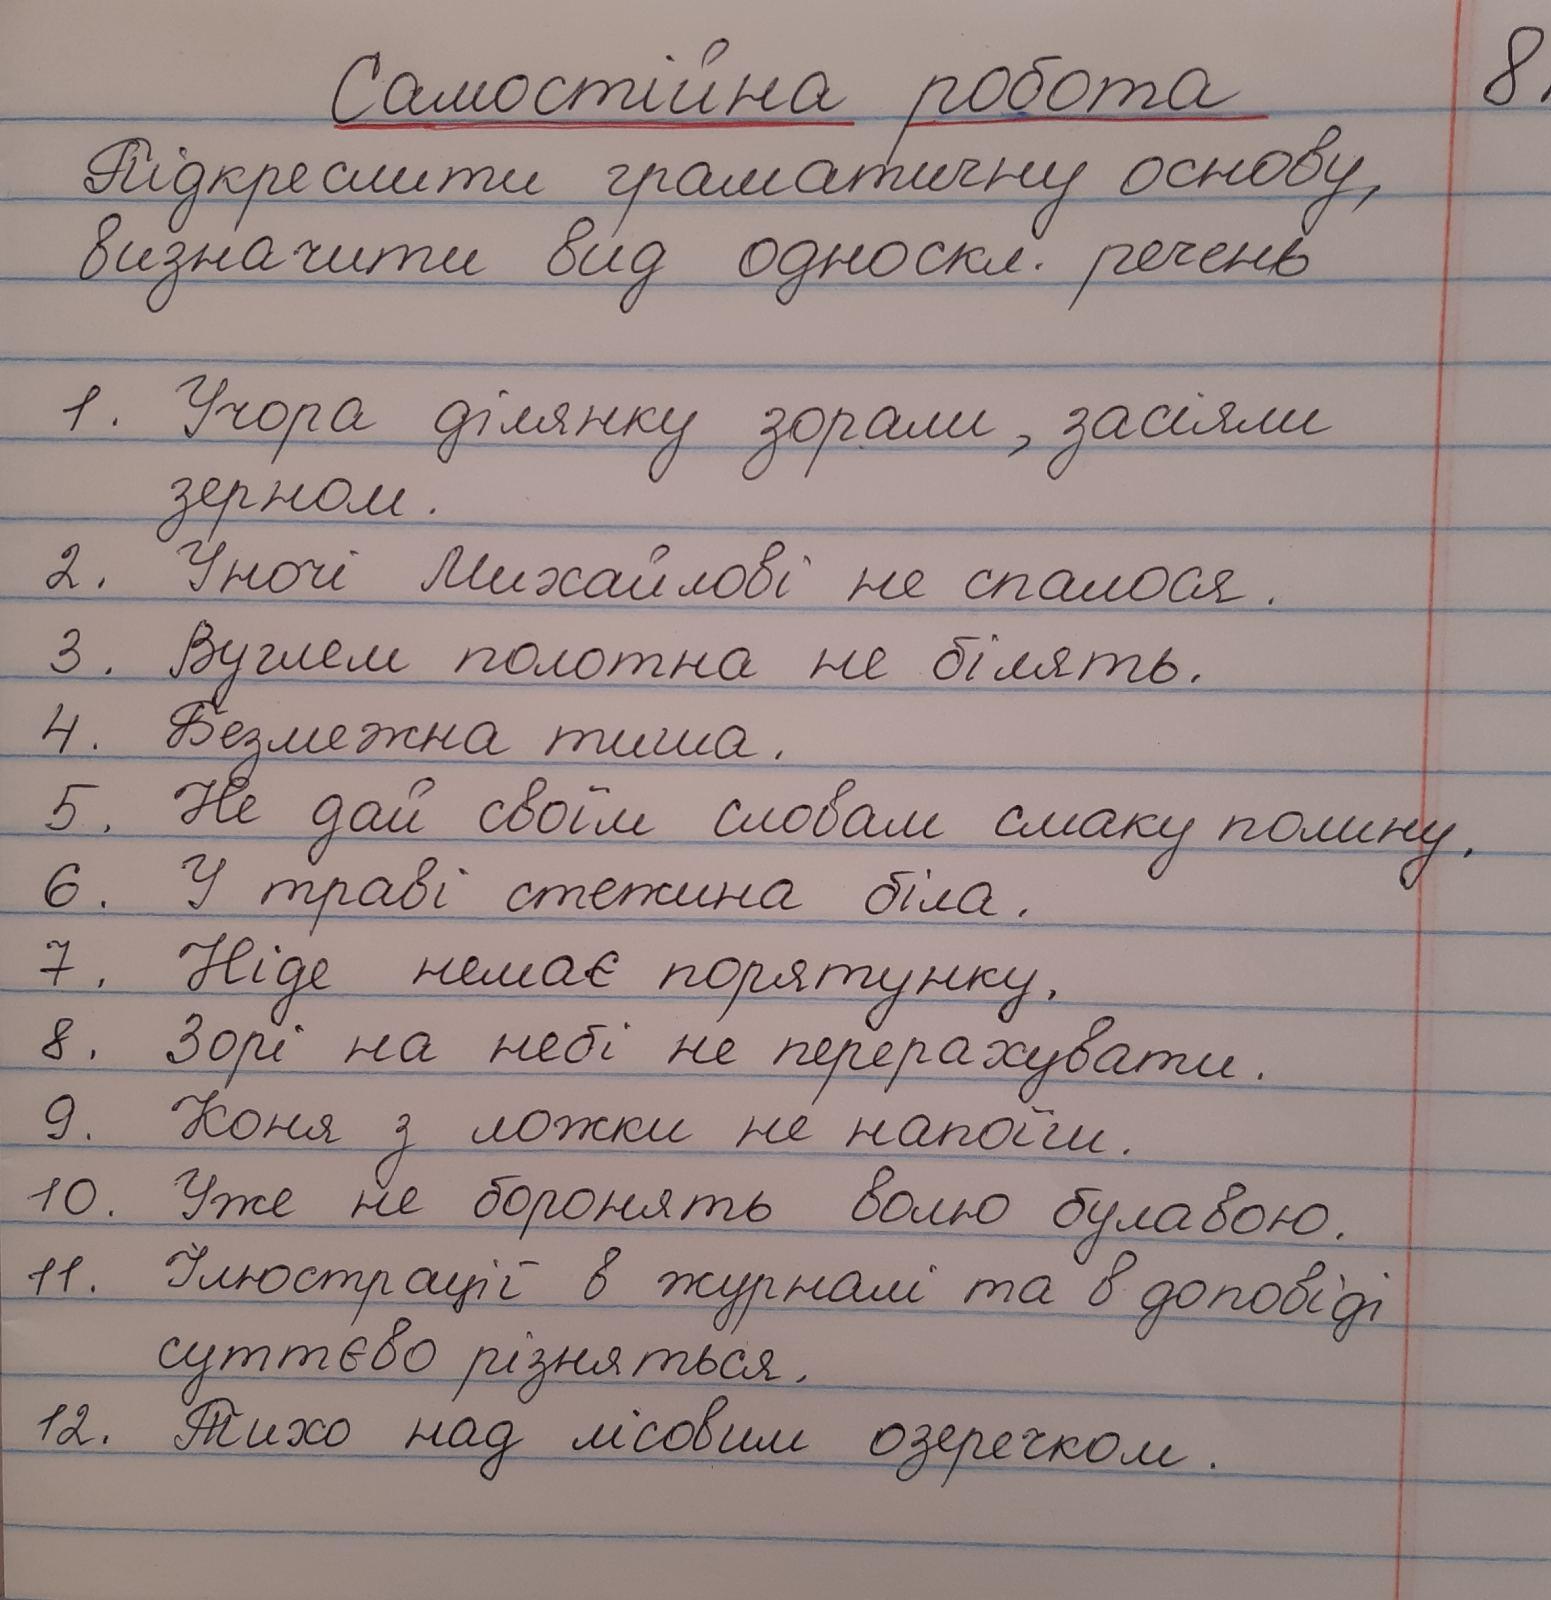 Самостійна робота 8
Підкреслити граматичну основу,
визначити вид односкл. речень
1. Учора ділянку зорали, засіяли
зерном.
2. Уночі Михайлові не спалося.
3. Вуглем полотна не білять.
4. Безмежна тиша.
5. Не дай своїм словам смаку полину.
6. У траві стежина біла.
7. Ніде немає порятунку.
8. Зорі на небі не перерахувати.
9. Коня з ложки не напоїш.
10. Уже не боронять волю булавою.
11. Ілюстрації в журналі та в доповіді
суттєво різняться.
12. Тихо над лісовим озеречком.